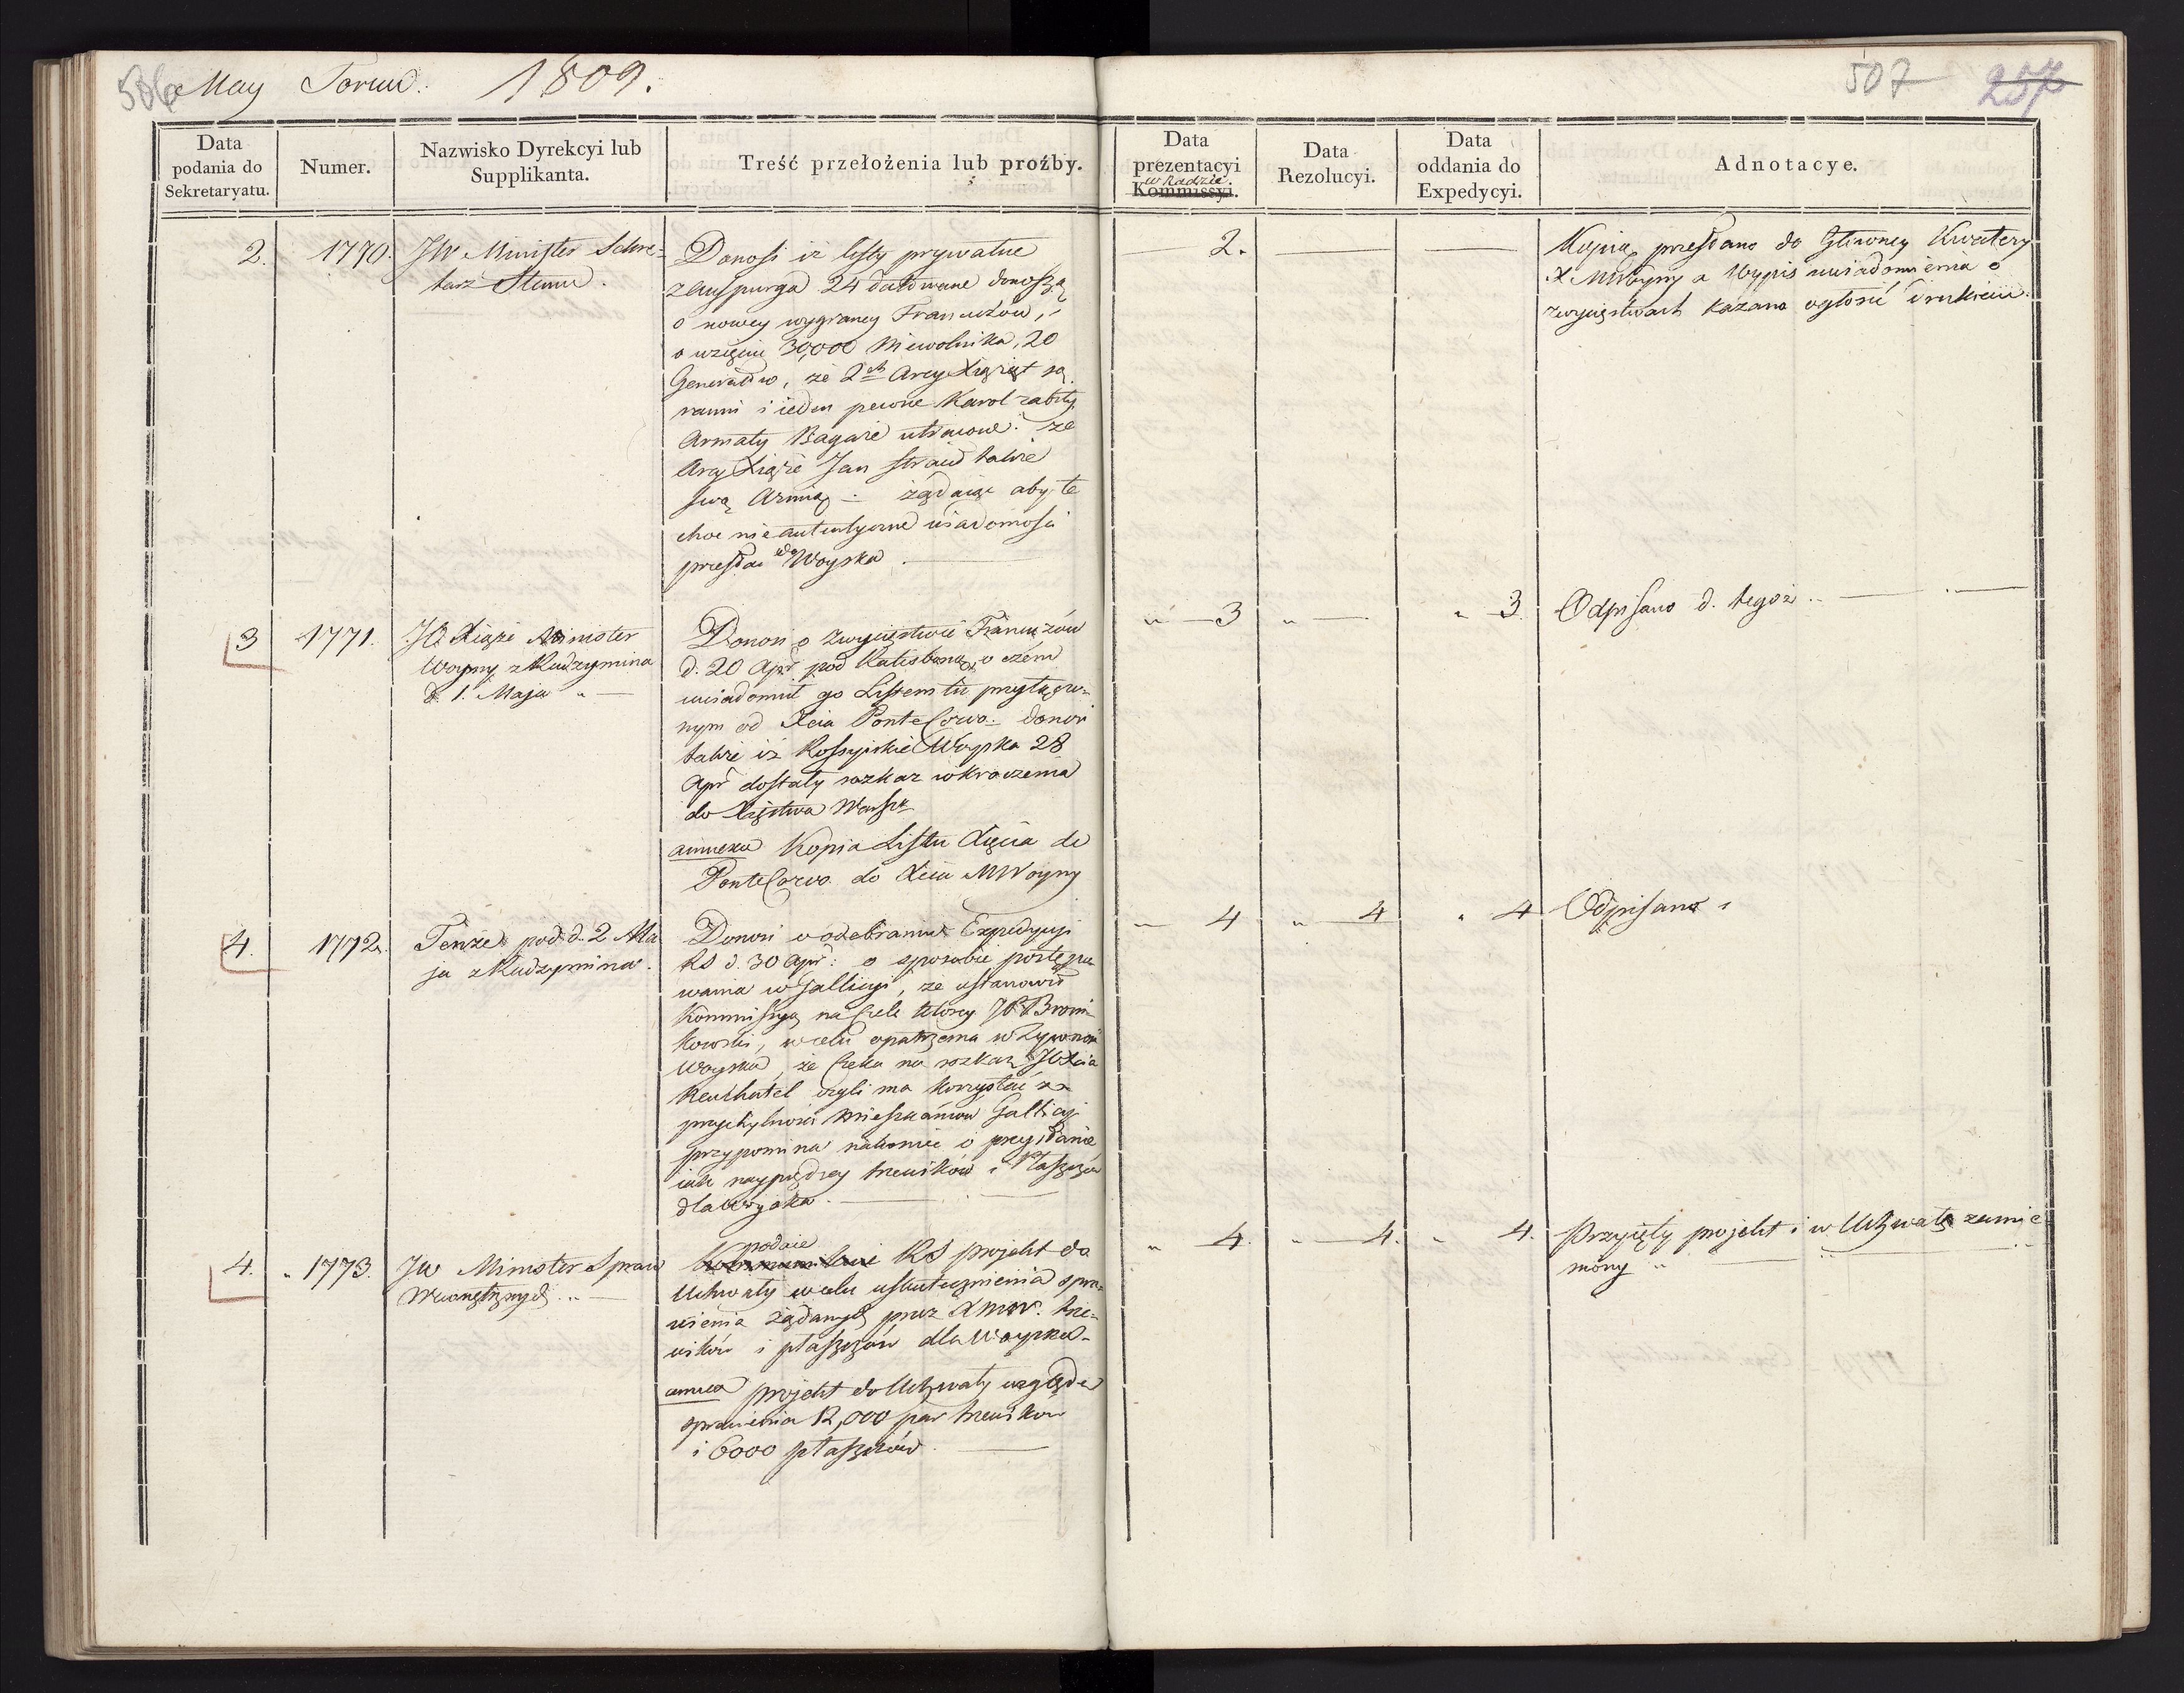 506 May Toruń. 1809.
507 257
Data podania do Sekretaryatu.
Numer.
Nazwisko Dyrekcyi lub Supplikanta.
Treść przełożenia lub proźby.
Data prezentacyi w Radzie Kommissyi.
Data Rezolucyi.
Data oddania do Expedycyi.
Adnotacye.
2. 1770. JW Minister Sekre-
tarz Stanu.
Donosi iż listy prywatne
z Auspurga 24 datowane donoszą
o nowey wygraney Francuzów,
o wzięciu 30,000 Niewolnika, 20
Generałów, że 2ch Arcy Xiążąt są
ranni i ieden pewne Karol zabity.
Armaty Bagaże utracone. że
Arcy Xiąże Jan stracił także
swą Armią. żądaiąc aby te
choć nie autentyczne wiadomości
przesłać do Woyska.
2.
Kopią przesłano do Główney Kwatery
X MWoyny a Wypis uwiadomienia o
zwycięstwach kazano ogłosić drukiem.
3 1771. JO Xiąże Minister
Woyny z Radzymina
d. 1. Maja
Donosi o zwycięstwie Francuzów
d. 20 Apr. pod Ratisboną, o czem
uwiadomił go Listem tu przyłączo-
nym od Xcia PonteCorvo. donosi
także iż Rossyiskie Woyska 28
Apr dostały rozkaz wkroczenia
do Xięstwa Warszo
annexa Kopia Listu Xięcia de
PonteCorvo do Xcia MWoyny
" 3 " " 3. Odpisano d. tegoż.
4. 1772. Tenże pod d. 2 Ma
ja z Radzymina.
Donosi o odebraniu Expedycyi
RS d. 30 Apr: o sposobie postępo
wania w Gallicyi, że ustanowił
Kommissyą na czele ktorey JP Broni-
kowski, w celu opatrzenia w Żywność
Woyska, że czeka na rozkaz JOXcia
Neuchatel czyli ma korzystać z
przychylności Mieszkańców Gallicyi
przypomina nakoniec o przysłanie
iak nayprędzey trzewików i Płaszczów
dla Woyska.
" 4 " 4 " 4 Odpisano
4. " 1773. JW Minister Spraw
Wewnętrznych
podaie RS projekt do
Uchwały w celu uskutecznienia spra-
wienia żądanych przez XMW. trze-
wików i płaszczów dla Woyska-
annexa projekt do Uchwały względem
sprawienia 12,000 par trzewików
i 6000 płaszczów.
" 4. " 4. " 4. Przyięty projekt i w Uchwałę zamie
niony "